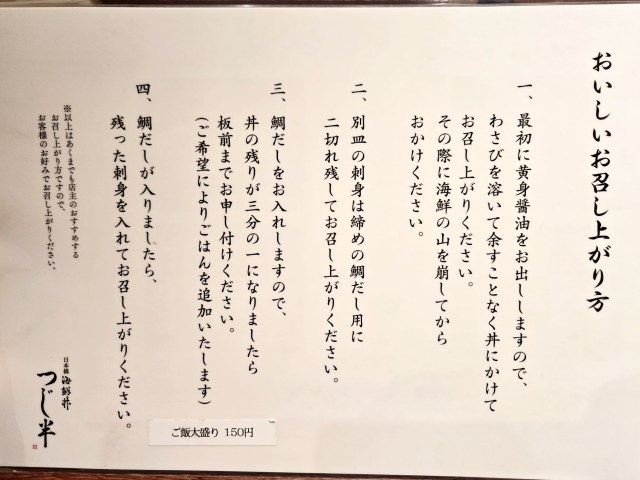 おいしいお召し上がり方
一、最初に黄身醤油をお出ししますので、
わさびを溶いて余すことなく丼にかけて
お召し上がりください。
その際に海鮮の山を崩してから
おかけください。
二、別皿の刺身は締めの鯛だし用に
二切れ残してお召し上がりください。
三、鯛だしをお入れしますので、
丼の残りが三分の一になりましたら
板前までお申し付けください。
(ご希望によりごはんを追加いたします)
四、鯛だしが入りましたら、
残った刺身を入れてお召し上がりください。
※以上はあくまでも店主のおすすめする
お召し上がり方ですので、
お客様のお好みでお召し上がりください。
日本橋 海鮮丼
つじ半
ご飯大盛り 150円